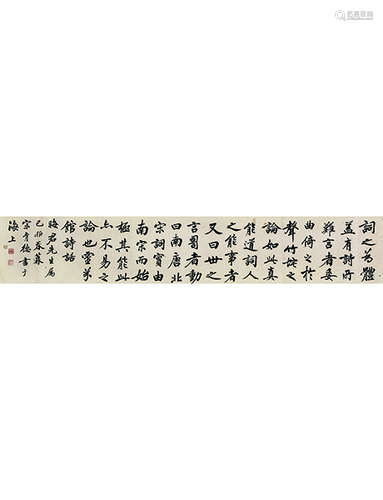 詞之為體
蓋有詩所
難言者委
曲倚之於
聲竹垞之
論如此真
能道詞人
之能事者
又曰世之
言詞者動
曰南唐北
宋詞實由
南宋而始
極其能此
亦不易之
論也靈芬
館詩話
先生屬
己卯春暮
宋育德書于
海上